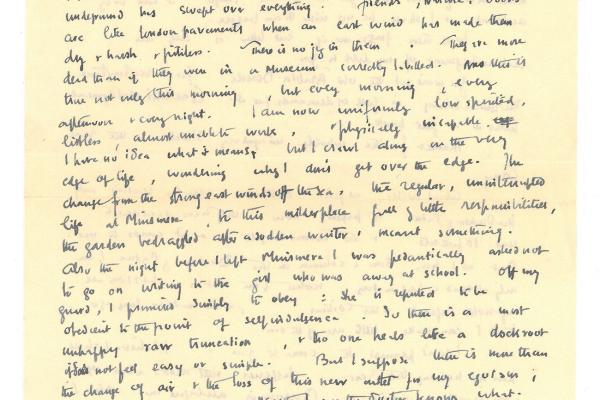 underground has swept over everything. friends, nature. books
are like London pavements when an east wind has made them
dry & harsh & pitiless. There is no joy in them. They are more
dead than if they were in a Museum correctly labelled. And this is
true not only this morning, but every morning, every
afternoon & every night. I am now uniformly low spirited,
listless, almost unable to work, & physically incapable.
I have no idea what it means, but I crawl along on the very
edge of life, wondering why I don't get over the edge. The
change from the strong east winds off the sea, the regular, uninterrupted
life at Minsmere, to this milder place full of little responsibilities,
the garden bedraggled after a sodden winter, meant something.
Also the night before I left Minsmere I was pedantically asked not
to go on writing to the girl who was away at school. Off my
guard, I promised simply to obey: she is reputed to be
obedient to the point of self indulgence. So there is a most
unhappy raw truncation, & tho one heals like a dockroot
it does not feel easy or simple. But I suppose there is more than
the change of air & the loss of this new outlet for my egoism;
what.